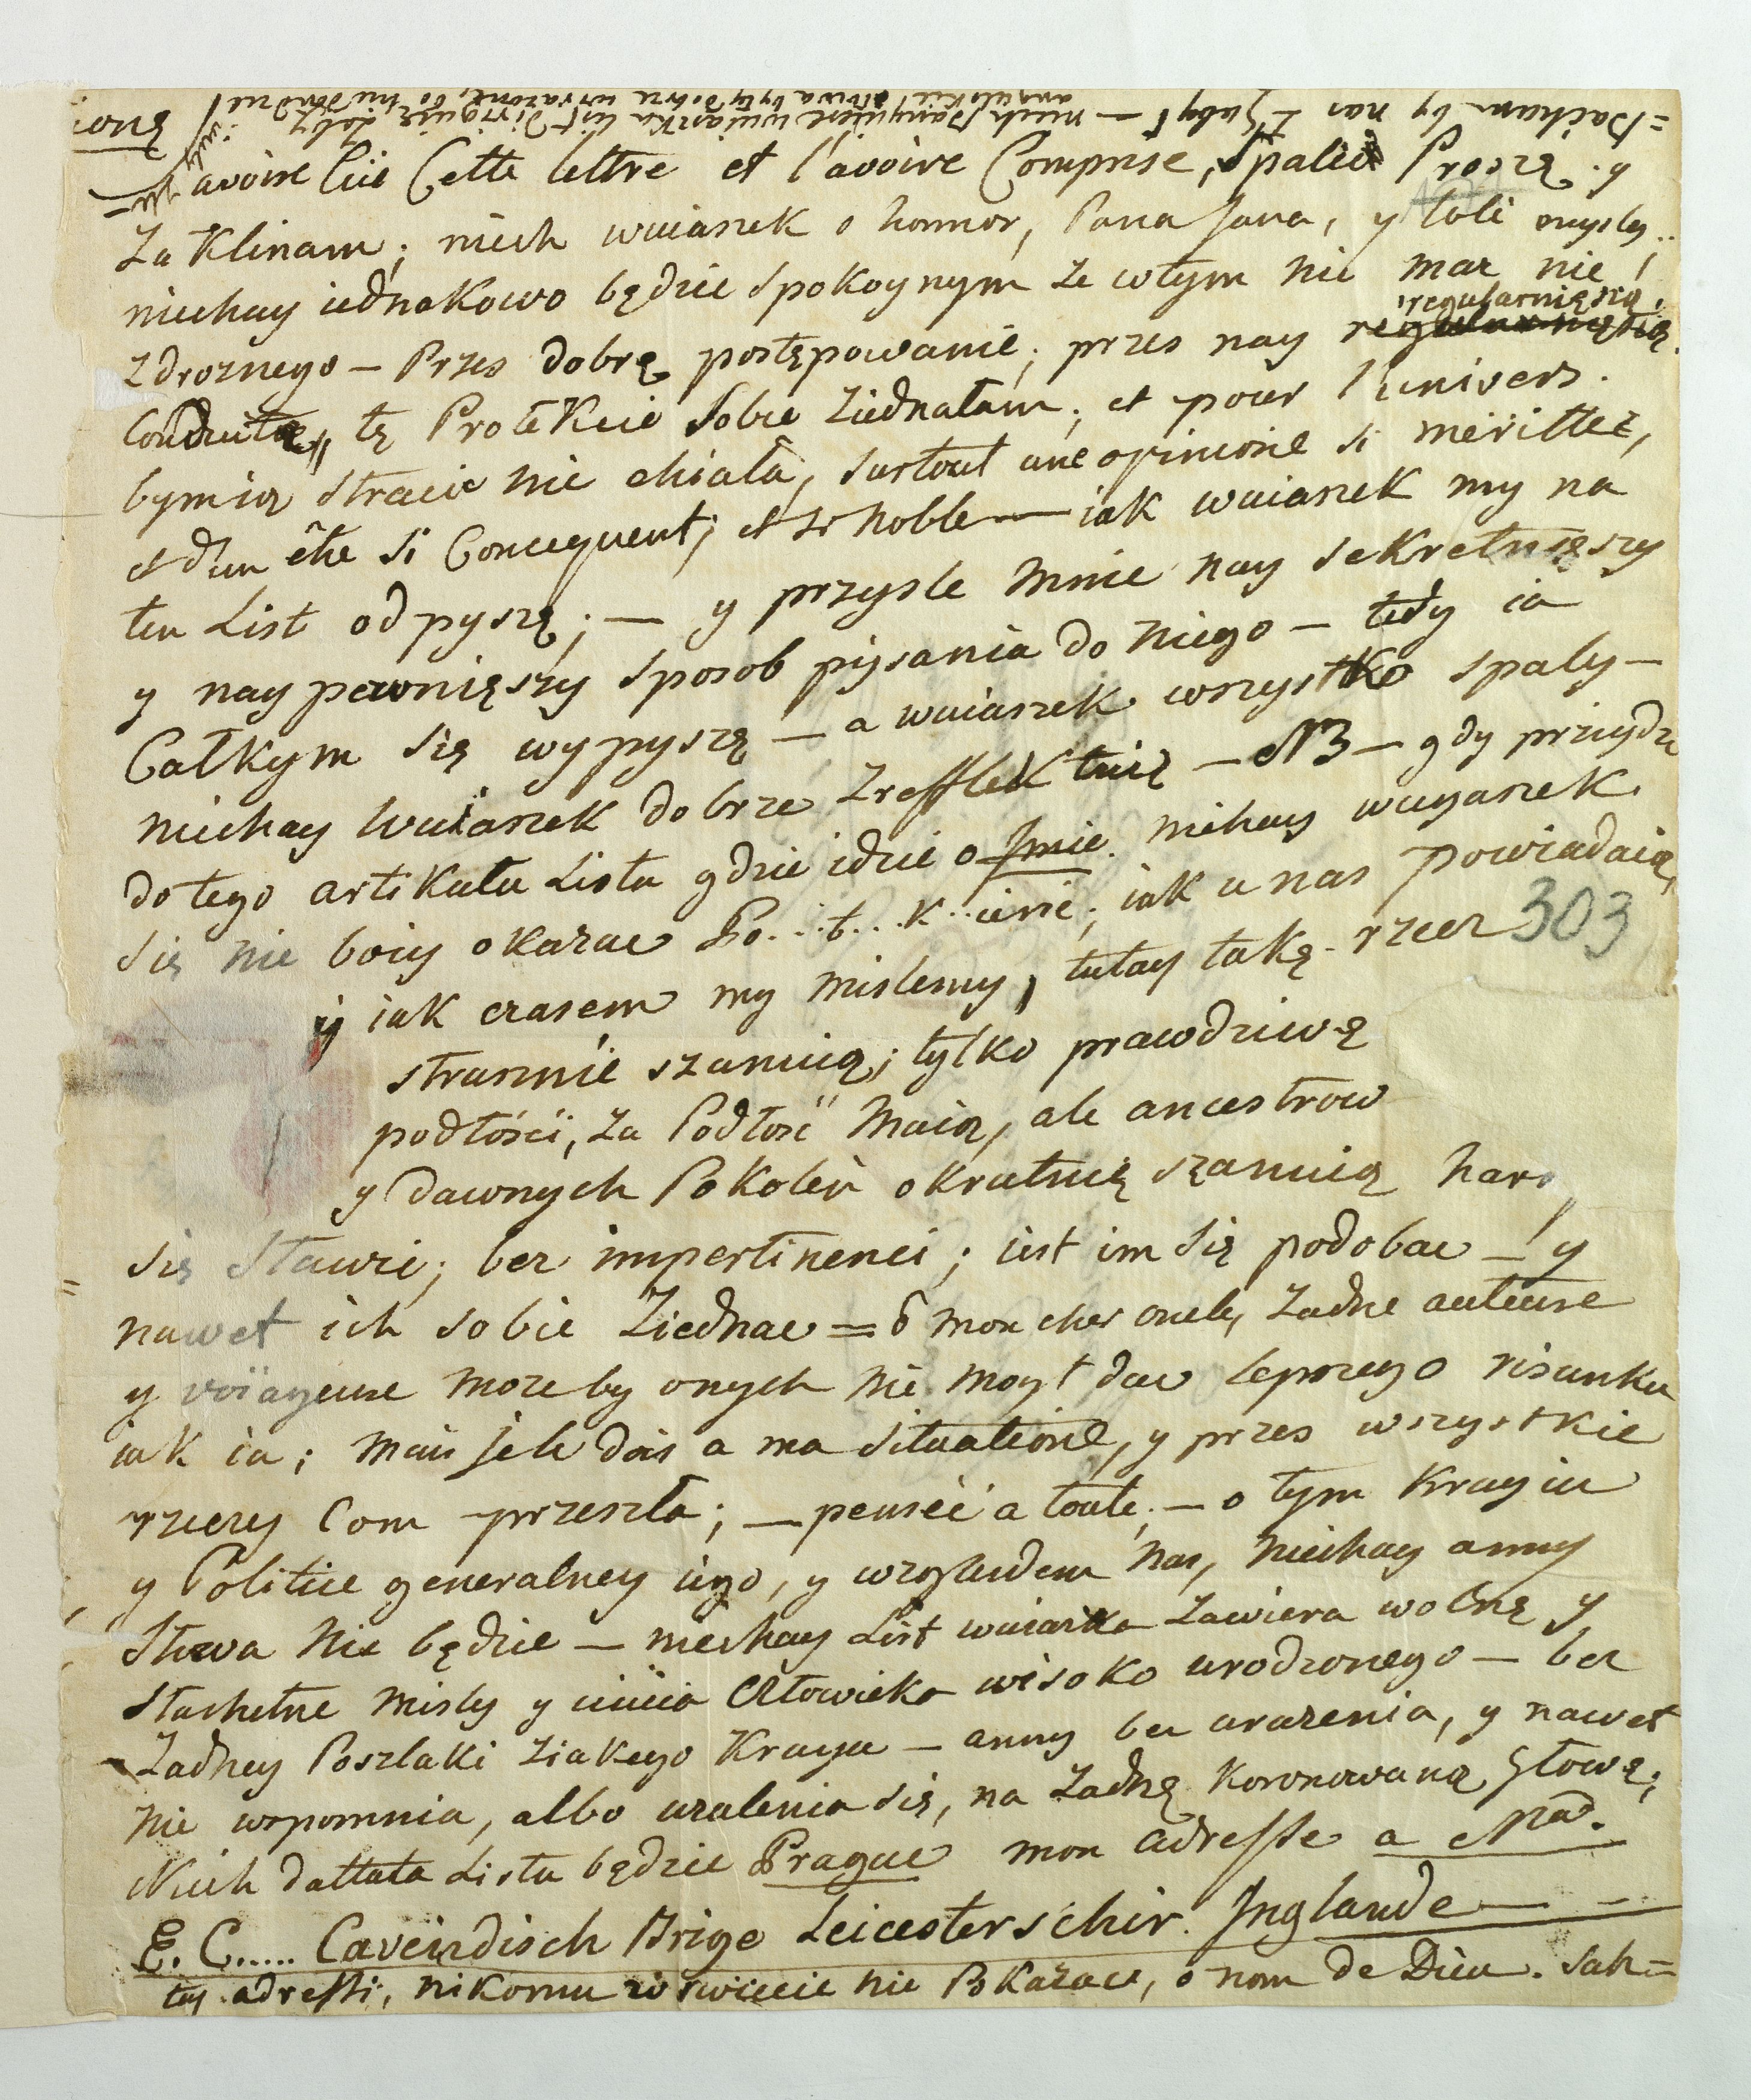 =Pachum by nas zgubył — niech Panyiwiese wuiaszka List dirigujsze żeby
angielskie słowa były dobrze wyrażone, bo nie dondzie
avoire lüe Cette lettre et l'avoire Comprise, Spalić Proszę. y
Zaklinam; niech wuiaszek o honnor, Pana Jana, y toli mysly..
niechay iednakowo będzie spokoynym ze wtym nie masz nie
zdrożnego — Przes dobrę postępowanie; przes nay regularnięszą
Conduitę,, tę Protekcie Sobie Ziednałam; et pour l'univers.
bymią stracic nie chiała, surtout une opinione si merittez,
et d'un être si Concequent; et si noble — iak wuiaszek my na
ten List odpyszę; — y przysle mnie nay sekretnięszy
y nay pewnięszy sposob pisania do niego — tedy ia
Całkym się wypyszę — a wuiaszek wszystko spaly —
niechay Wuiaszek dobrze Zrefflektuię — NB — gdy przydzie
do tego artikułu Listu gdzie idzie o Jmie niehay wuyaszek
się nie boiy okazac Po...t...k..ienie; iak u nas powiadaią,
303
y iak czasem my mislemy, tutay takę rzecz
strasznie szanuią; tylko prawdziwę
podłości, za Podłość maią, ale ancestrow
y dawnych Pokoleń okrutnię szanuią hardo
się Stawic; bez impertinenci; iest im się podobac — y
nawet ich sobie Ziednac = ô mon cher oncle, żadne auteure
y voïageure może by onych nie mogł dac lepszego risunku
iak ia; mais je le dois a ma situatione, y przes wszystkie
rzeczy Com przeszła; — penséé a toute; — o tym Krayiu
y Politice generalney iego, y wzglendem nas, niechay anny
słowa nie będzie — niechay List wuiaszka zawiera wolnę y
słachetne misly y ucucia człowieka wisoko urodzonego — bez
żadney Poszlaki ziakiego Krayu — anny bez urażenia, y nawet
nie wspomnia, albo użalenia się, na żadnę koronowaną głowę;
Niech dattata Listu będzie Prague mon adresse a Mad.
E. C..... Caveindisch Brige Leicesterschir. Inglande —
tey adressi, nikomu w swiecie nie Pokazac, o nom de Dieu. sah=